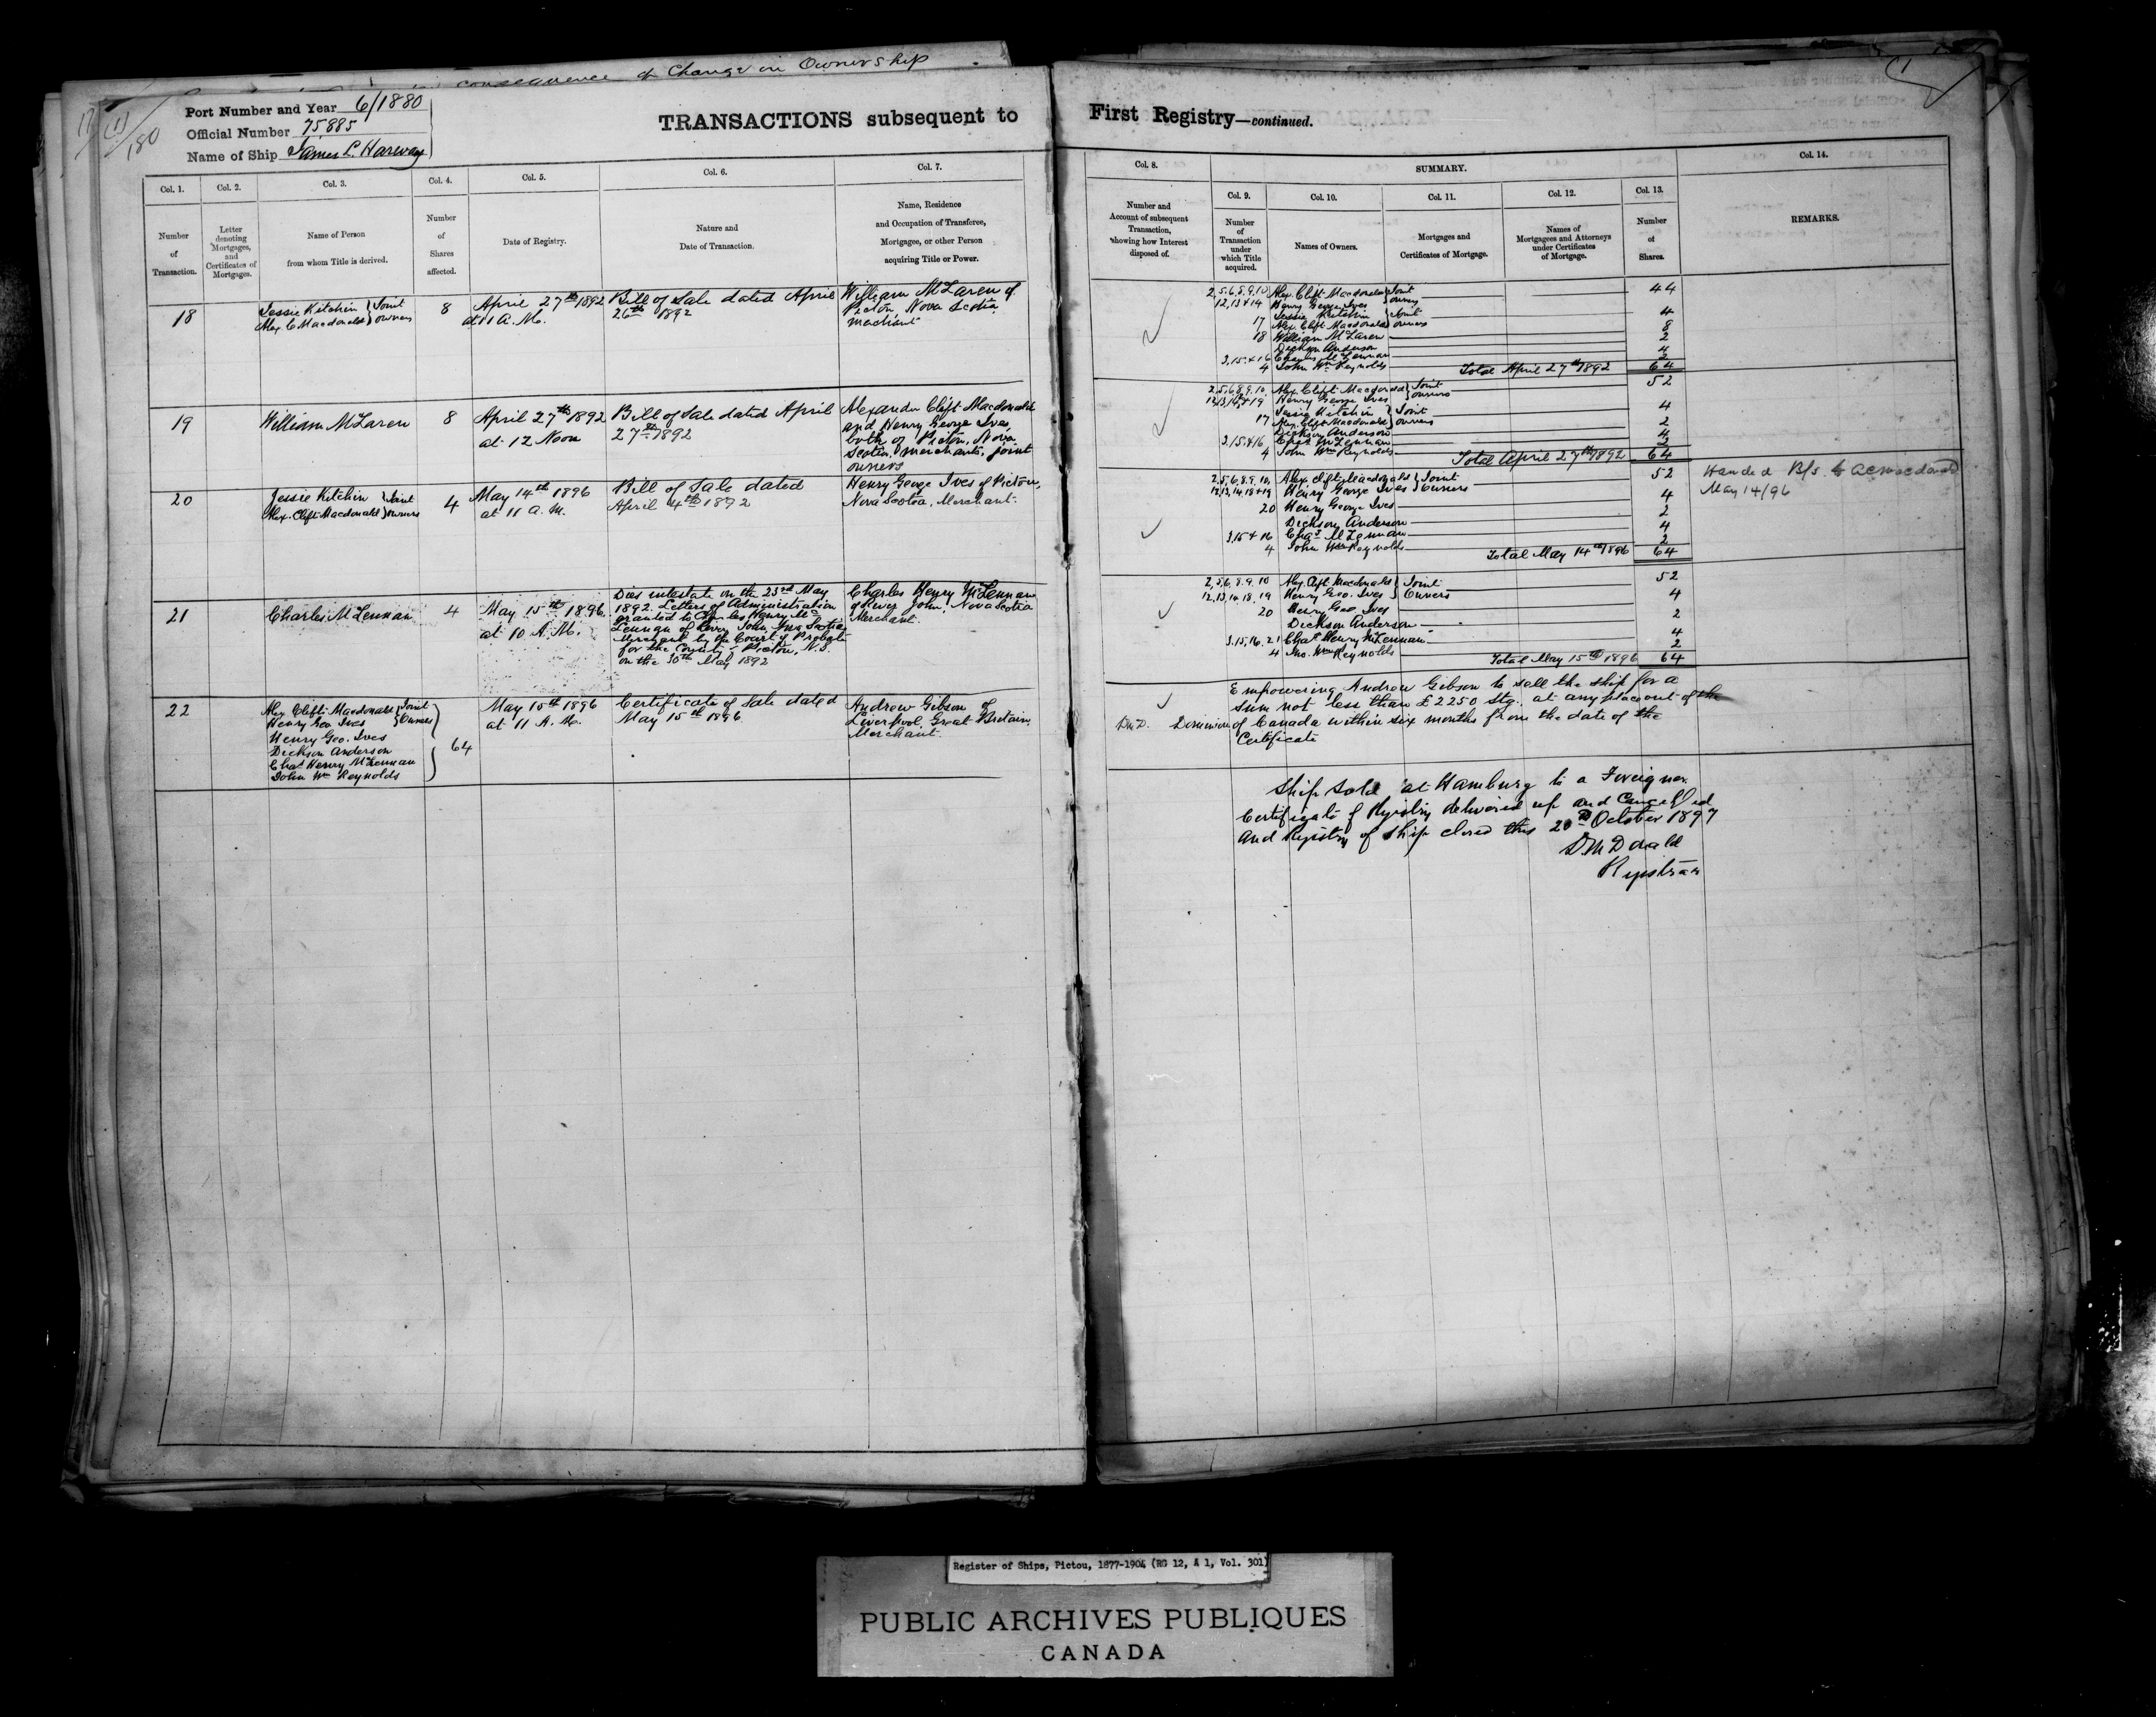 consequence of Change in Ownership
Port Number and Year 6/1880
Official Number 75,885
Name of Ship James L. Harway
TRANSACTIONS subsequent to First Registry—continued.
Col. 1.
Number
of
Transaction.
Col. 2.
Letter
denoting
Mortgages,
and
Certificates of
Mortgages.
Col. 3.
Name of Person
from whom Title is derived.
Col. 4.
Number
of
Shares
affected.
Col. 5.
Date of Registry.
Col. 6.
Nature and
Date of Transaction.
Col. 7.
Name, Residence
and Occupation of Transferee,
Mortgagee, or other Person
acquiring Title or Power.
Col. 8.
Number and
Account of subsequent
Transaction,
showing how Interest
disposed of.
SUMMARY.
Col. 9.
Number
of
Transaction
under
which Title
acquired.
Col. 10.
Names of Owners.
Col. 11.
Mortgages and
Certificates of Mortgage.
Col. 12.
Names of
Mortgagees and Attorneys
under Certificates
of Mortgage.
Col. 13.
Number
of
Shares.
Col. 14.
REMARKS.
18
Jessie Kitchin } Joint
Alex. C Macdonald } owners
8
April 27th 1892
at 11 A. M.
Bill of Sale dated April
26th 1892
William McLaren of
Pictou Nova Scotia
merchant
2,5,6,8,9,10 Alex. Clift Macdonald } Joint 44
12,13 & 14 Henry George Ives } owners
17 Jessie Kitchin } Joint 4
Alex. Clift Macdonald } owners
18 William McLaren 8
Dickson Anderson 2
3,15 & 16 Charles McLennan 4
4 John Wm Reynolds 2
Total April 27th 1892 64
19
William McLaren
8
April 27th 1892
at 12 Noon
Bill of Sale dated April
27th 1892
Alexander Clift Macdonald
and Henry George Ives,
both of Pictou, Nova
Scotia, merchants, joint
owners
2,5,6,8,9,10, Alex. Clift Macdonald } Joint 52
12,13,14,18 & 19 Henry George Ives } owners
17 Jessie Kitchin } Joint 4
Alex. Clift Macdonald } owners
Dickson Anderson 2
3,15 & 16 Chas McLennan 4
4 John Wm Reynolds 2
Total April 27th 1892 64
20
Jessie Kitchin } Joint
Alex. Clift Macdonald } owners
4
May 14th 1896
at 11 A. M.
Bill of Sale dated
April 4th 1892
Henry George Ives of Pictou,
Nova Scotia, Merchant.
2,5,6,8,9,10, Alex Clift Macdonald } Joint 52
12,13,14,18 & 19 Henry George Ives } Owners
20 Henry George Ives 4
Dickson Anderson 2
3,15 & 16 Chas McLennan 4
4 John Wm Reynolds 2
Total May 14th 1896 64
Handed B/s to A C Macdonald
May 14/96
21
Charles McLennan
4
May 15th 1896
at 10 A. M.
Died intestate on the 23rd May
1892. Letters of Administration
granted to Charles Henry Mc
Lennan of River John, Nova Scotia
Merchant by the Court of Probate
for the County of Pictou, N.S.
on the 30th May 1892
Charles Henry McLennan
of River John, Nova Scotia
Merchant.
2,5,6,8,9,10 Alex. Clift Macdonald } Joint 52
12,13,14,18,19 Henry Geo. Ives } Owners
20 Henry Geo Ives 4
Dickson Anderson 2
3,15,16,21 Chas Henry McLennan 4
4 Jno. Wm Reynolds 2
Total May 15th 1896 64
22
Alex Clift Macdonald } Joint
Henry Geo Ives } Owners
Henry Geo. Ives
Dickson Anderson
Chas Henry McLennan
John Wm Reynolds
64
May 15th 1896
at 11 A. M.
Certificate of Sale dated
May 15th 1896
Andrew Gibson of
Liverpool, Great Britain
Merchant.
Empowering Andrew Gibson to sell the ship for a
sum not less than £2250 Stg. at any place out of the
Dominion of Canada within six months from the date of the
Certificate
Ship sold at Hamburg to a Foreigner.
Certificate of Registry delivered up and Cancelled
and Registry of Ship closed this 20th October 1897
D. McDonald
Registrar
Register of Ships, Pictou, 1877-1904 (RG 12, A 1, Vol. 301)
PUBLIC ARCHIVES PUBLIQUES
CANADA